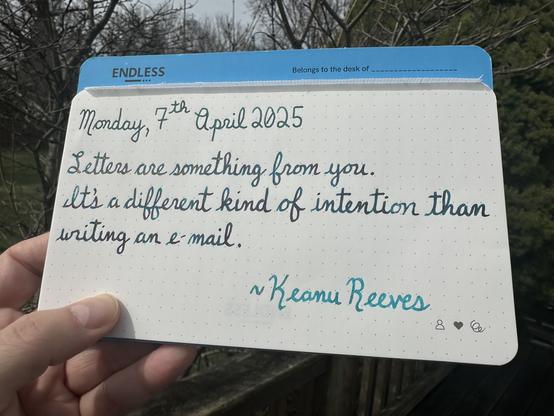 ENDLESS
Belongs to the desk of
Monday, 7th April 2025
Letters are something from you.
It's a different kind of intention than
writing an e-mail.
~ Keanu Reeves